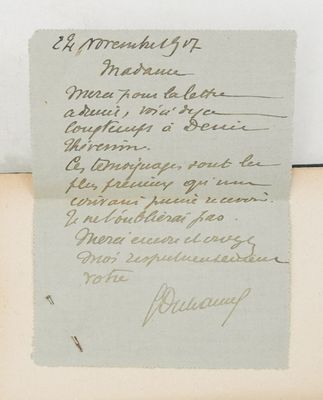 22 novembre 1917
Madame
Merci pour la lettre
adressée, voici déjà
longtemps à Denis
Thévenin.
Ces témoignages sont les
plus précieux qu'un
écrivain puisse recevoir.
Je ne l'oublierai pas.
Merci encore et croyez
moi respectueusement
votre
GDuhamel